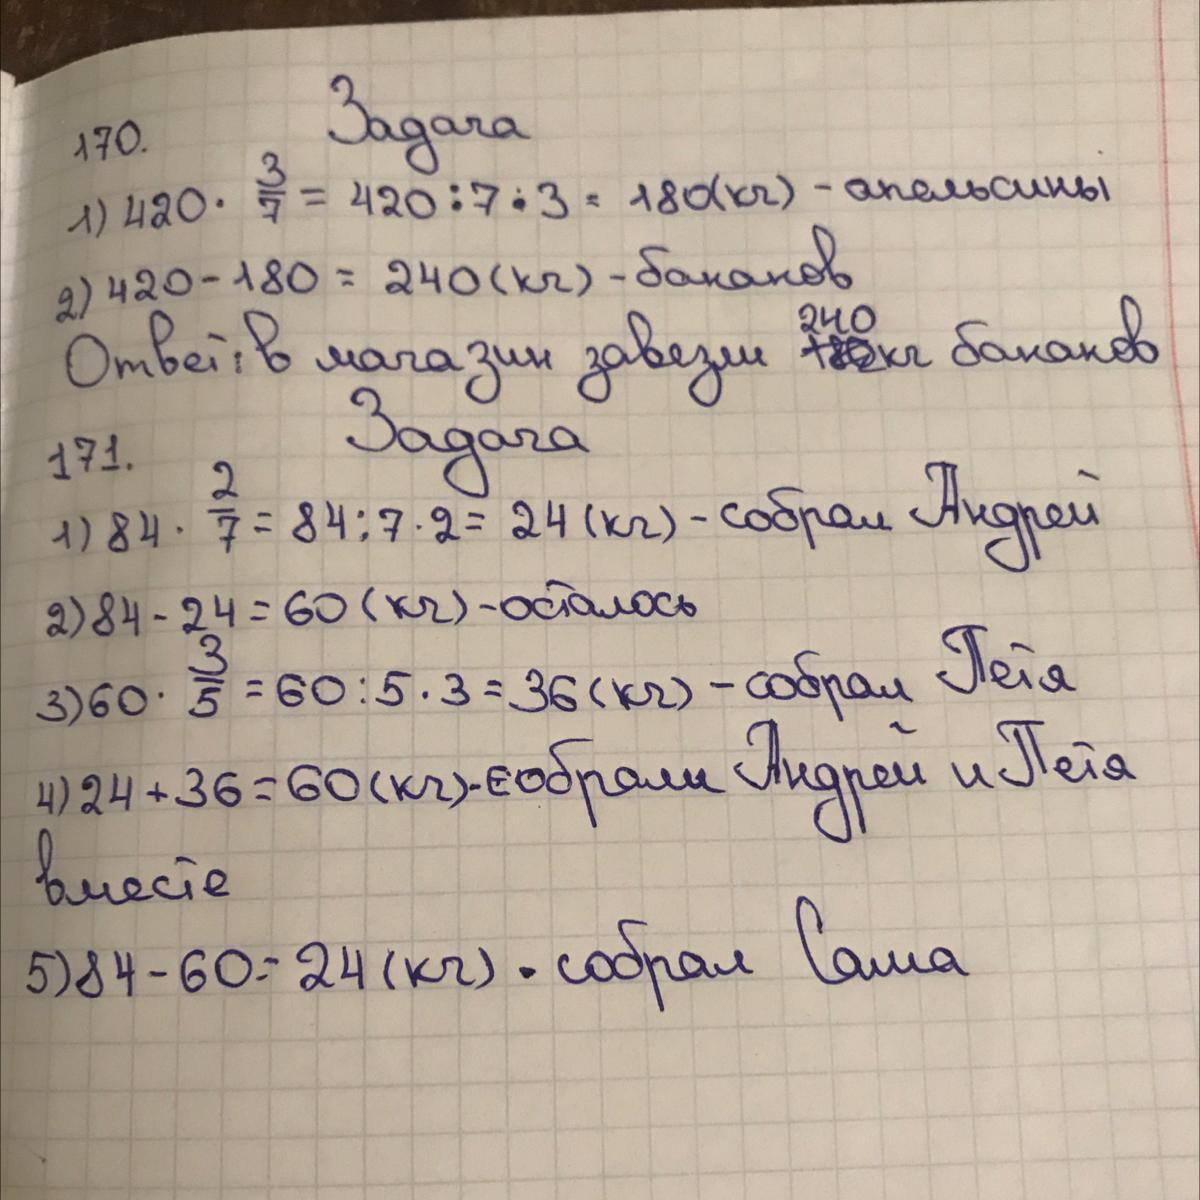 170. Задача
1) 420 · 3/7 = 420 : 7 · 3 = 180(кг) - апельсины
2) 420 - 180 = 240(кг) - бананов
Ответ: в магазин завезли 240 кг бананов
171. Задача
1) 84 · 2/7 = 84 : 7 · 2 = 24 (кг) - собрал Андрей
2) 84 - 24 = 60 (кг) - осталось
3) 60 · 3/5 = 60 : 5 · 3 = 36 (кг) - собрал Петя
4) 24 + 36 = 60 (кг) - собрали Андрей и Петя
вместе
5) 84 - 60 = 24 (кг) - собрал Саша